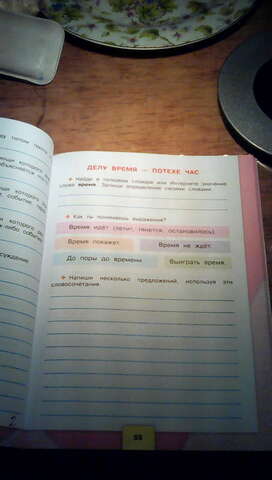 ДЕЛУ ВРЕМЯ — ПОТЕХЕ ЧАС
Найди в толковом словаре или Интернете значение
слова время. Запиши определение своими словами.
Как ты понимаешь выражения?
Время идёт (летит, тянется, остановилось).
Время покажет.
Время не ждёт.
До поры до времени.
Выиграть время.
Напиши несколько предложений, используя эти
словосочетания.